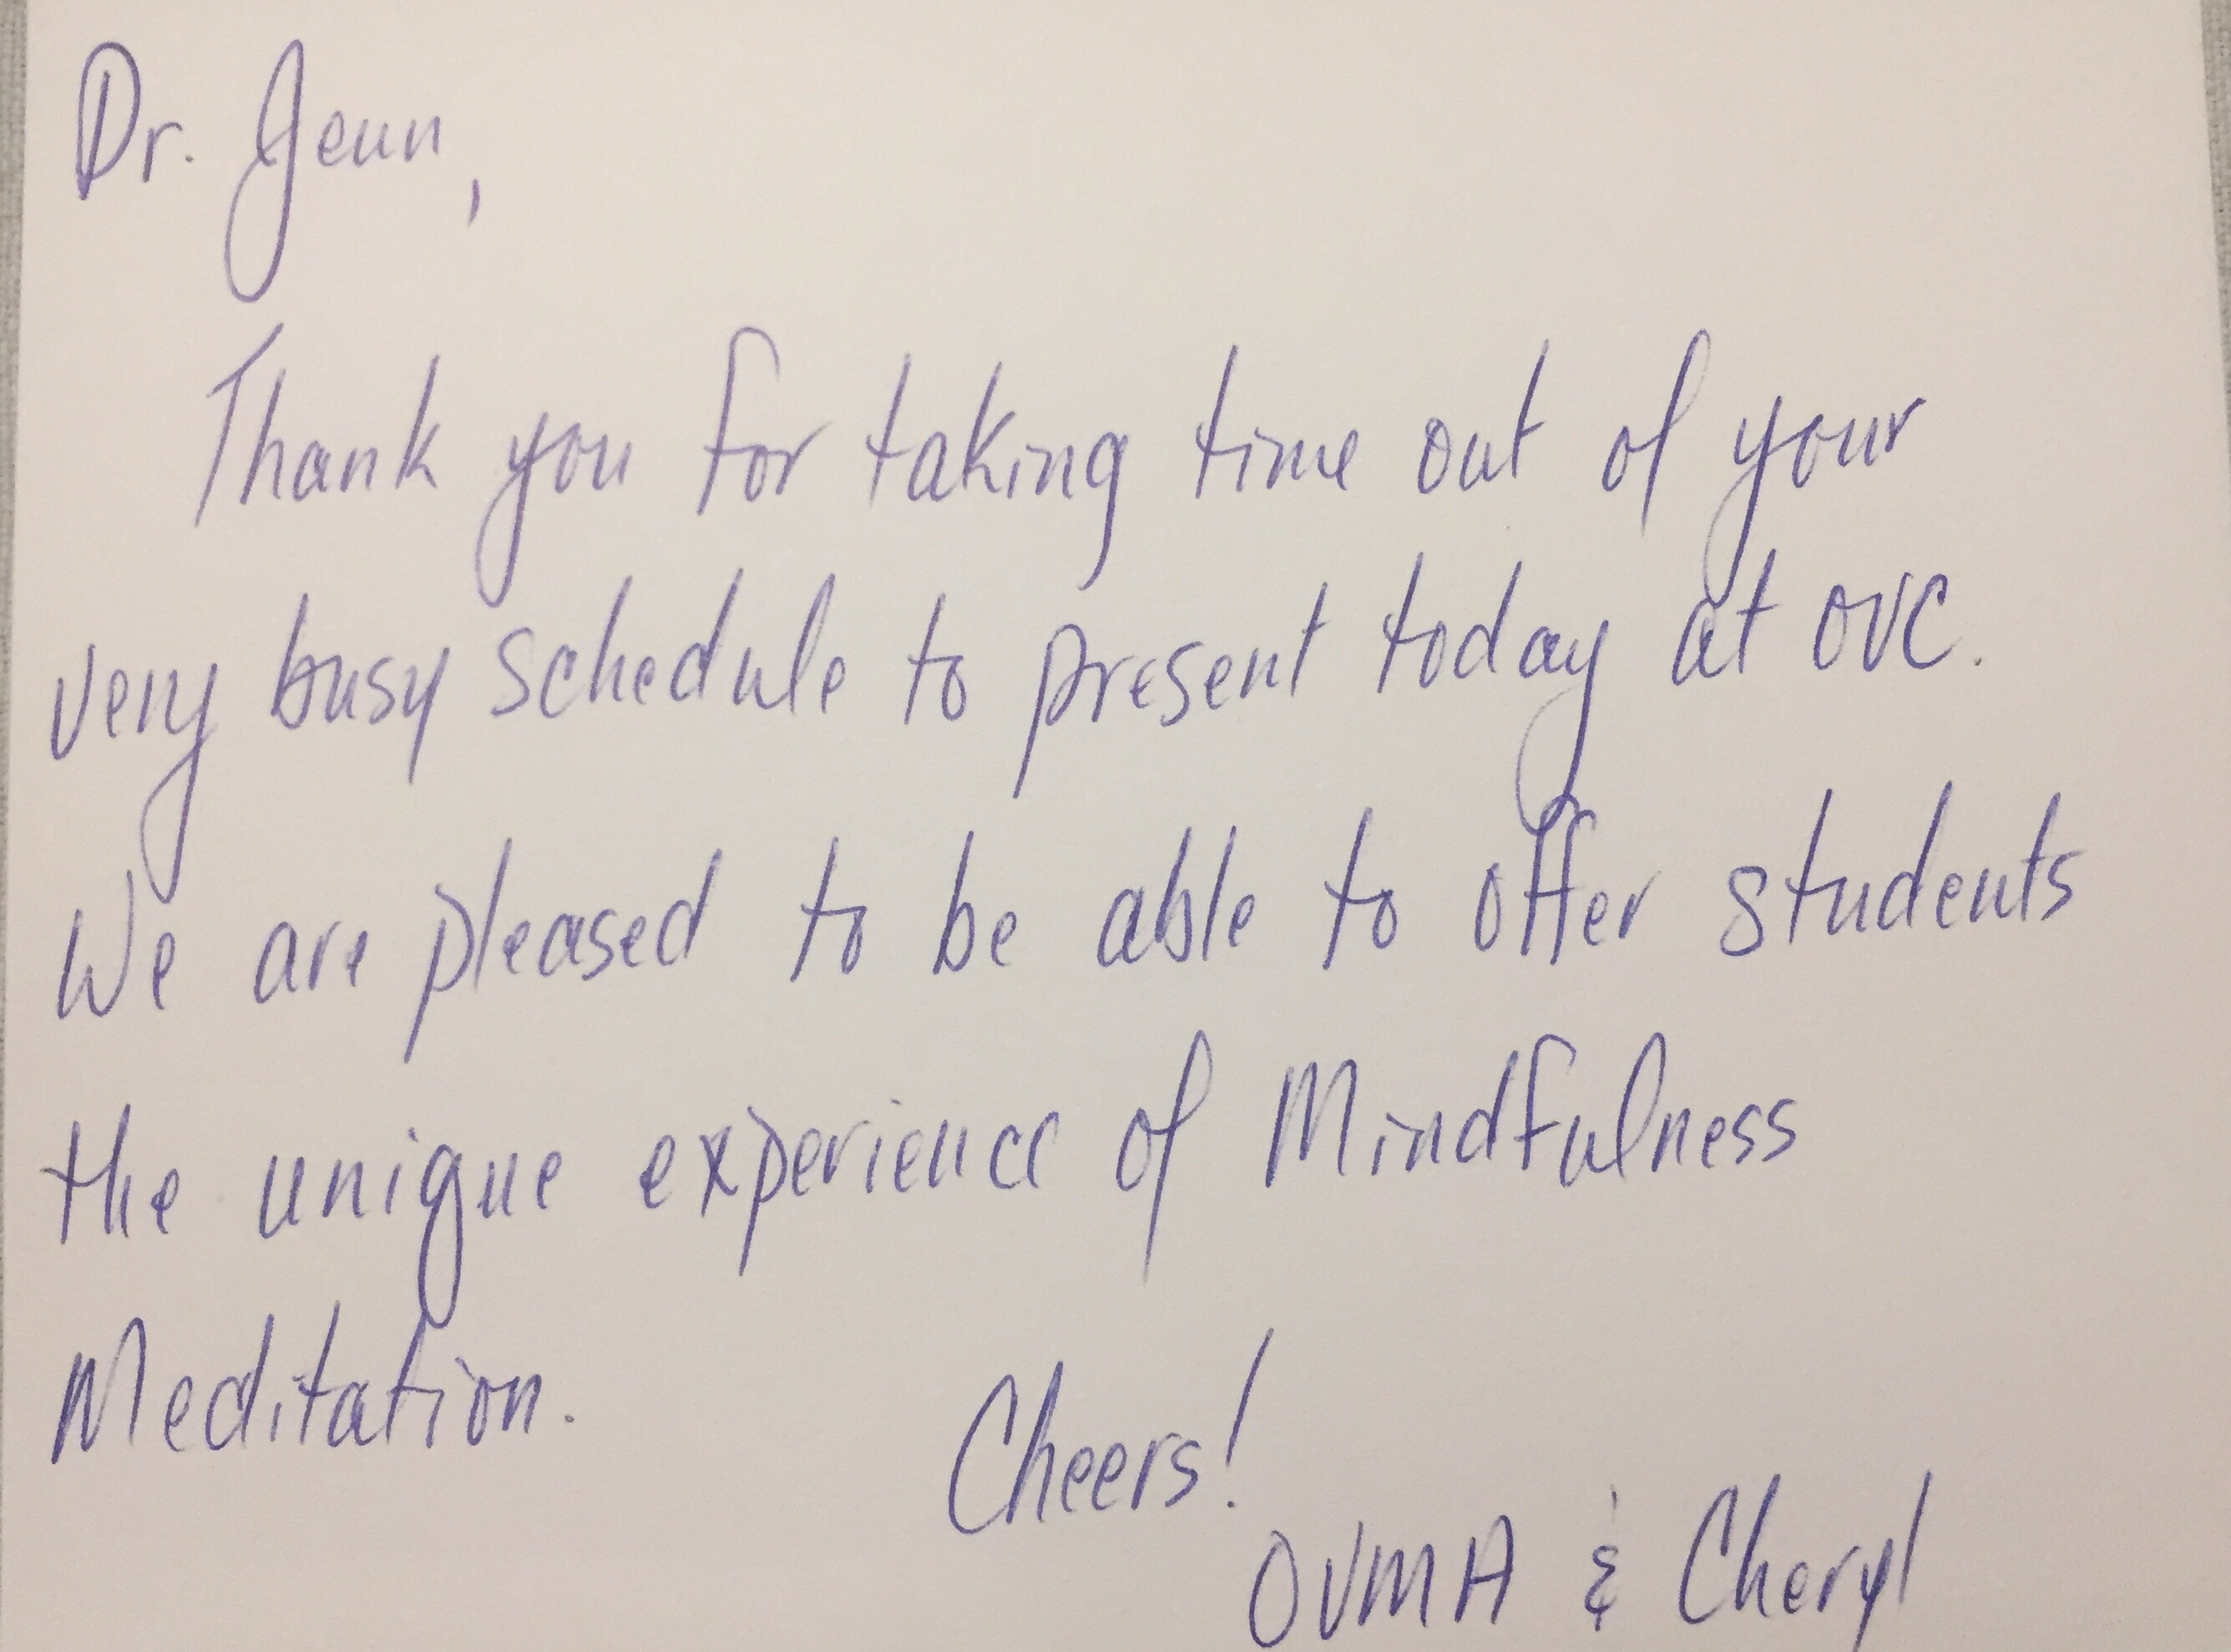 Dr. Jeun,
Thank you for taking time out of your
very busy schedule to present today at OVC.
We are pleased to be able to offer students
the unique experience of Mindfulness
Meditation.
Cheers!
OVMA & Cheryl